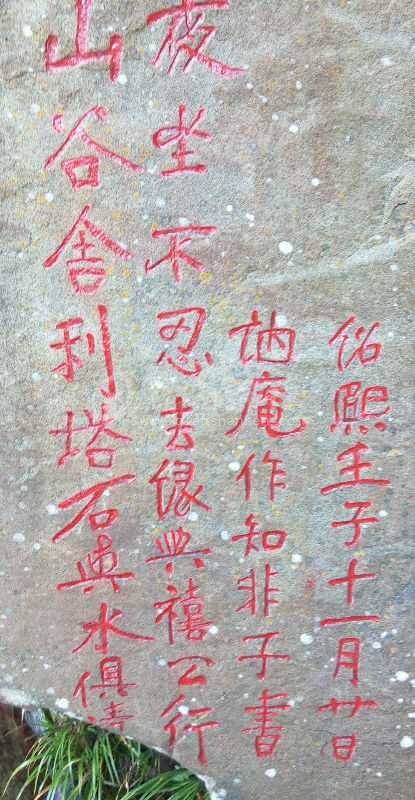 山谷舍利塔石與水俱清
夜坐不忍去緣與禧公行
訥庵作知非子書
紹熙壬子十一月廿日